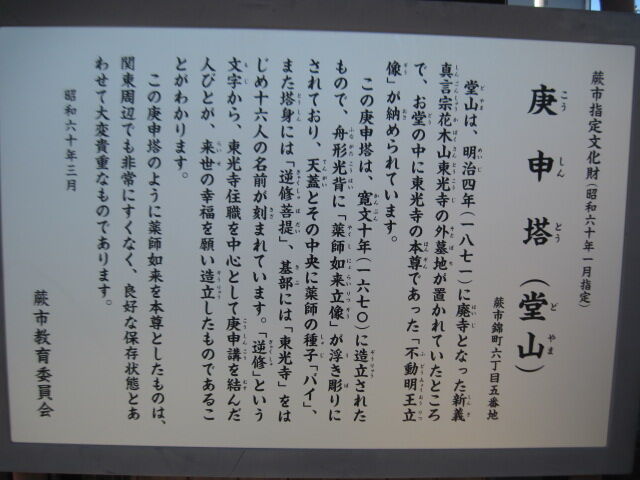 蕨市指定文化財(昭和六十年一月指定)
庚申塔(堂山)
こうしんとう どやま
蕨市錦町六丁目五番地
堂山は、明治四年(一八七一)に廃寺となった新義
真言宗花木山東光寺の外墓地が置かれていたところ
で、お堂の中に東光寺の本尊であった「不動明王立
像」が納められています。
この庚申塔は、寛文十年(一六七〇)に造立された
もので、舟形光背に「薬師如来立像」が浮き彫りに
されており、天蓋とその中央に薬師の種子「バイ」、
また塔身には「逆修菩提」、基部には「東光寺」をは
じめ十六人の名前が刻まれています。「逆修」という
文字から、東光寺住職を中心として庚申講を結んだ
人びとが、来世の幸福を願い造立したものであるこ
とがわかります。
この庚申塔のように薬師如来を本尊としたものは、
関東周辺でも非常にすくなく、良好な保存状態とあ
わせて大変貴重なものであります。
昭和六十年三月
蕨市教育委員会